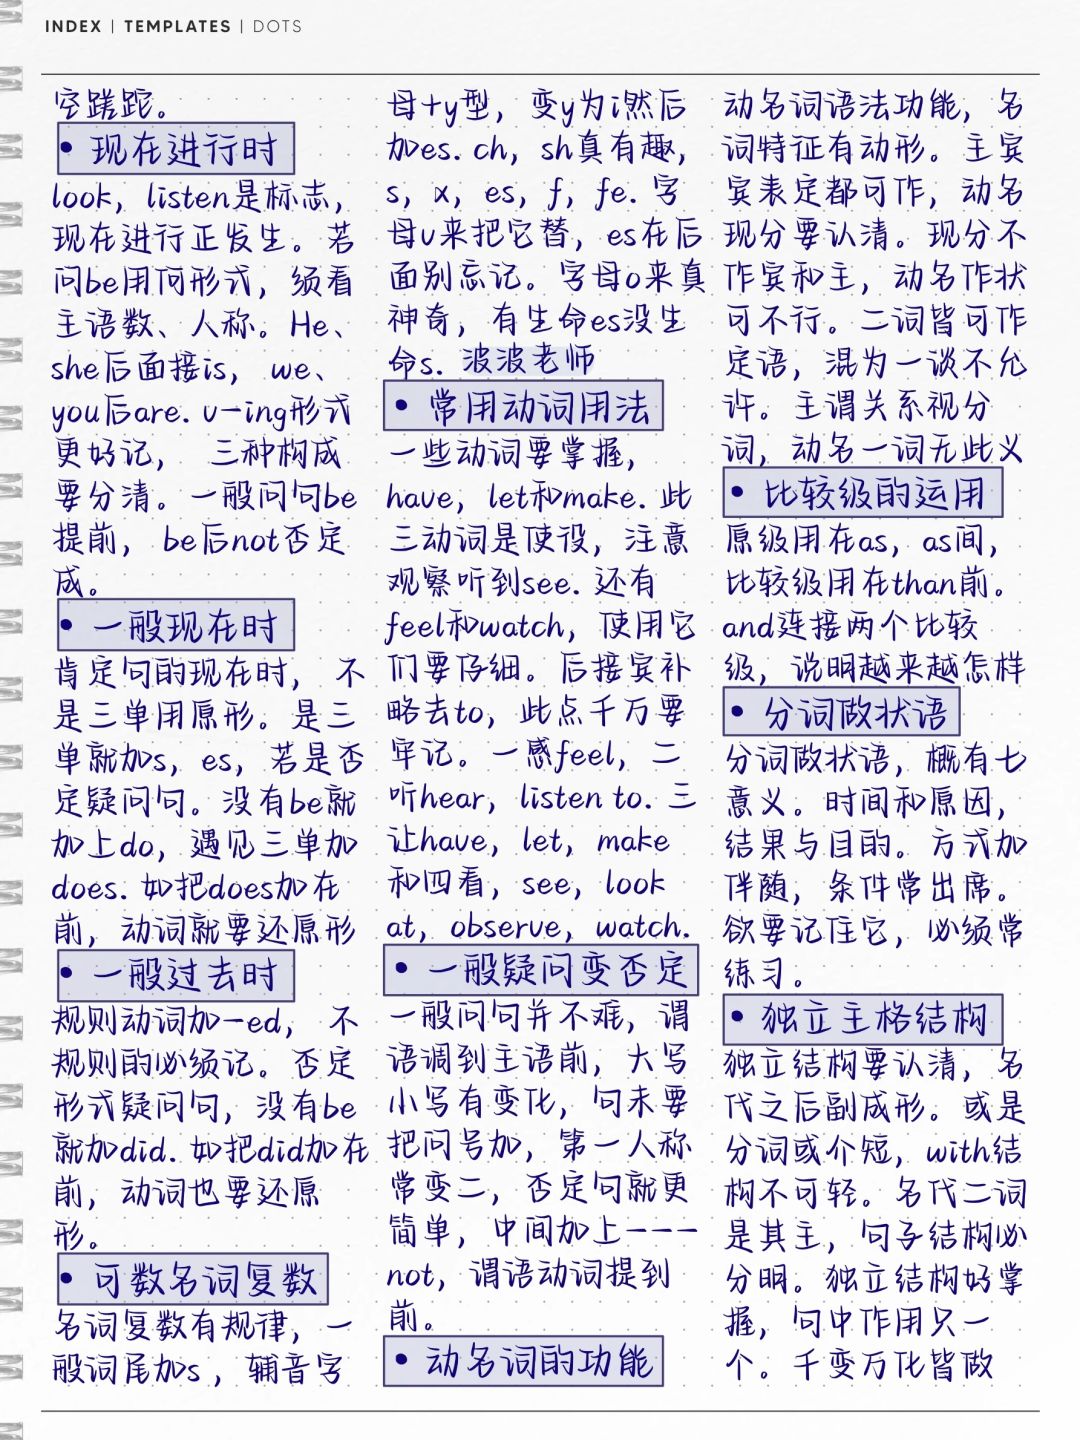 INDEX | TEMPLATES | DOTS
空蹉跎。
• 现在进行时
look, listen是标志,
现在进行正发生。若
问be用何形式, 须看
主语数、人称。He、
she后面接is, we、
you后are. v-ing形式
更好记, 三种构成
要分清。一般问句be
提前, be后not否定
成。
• 一般现在时
肯定句的现在时, 不
是三单用原形。是三
单就加s, es, 若是否
定疑问句。没有be就
加上do, 遇见三单加
does. 如把does加在
前, 动词就要还原形
• 一般过去时
规则动词加-ed, 不
规则的必须记。否定
形式疑问句, 没有be
就加did. 如把did加在
前, 动词也要还原
形。
• 可数名词复数
名词复数有规律, 一
般词尾加s , 辅音字
母+y型, 变y为i然后
加es. ch, sh真有趣,
s, x, es, f, fe. 字
母v来把它替, es在后
面别忘记。字母o来真
神奇, 有生命es没生
命s. 波波老师
• 常用动词用法
一些动词要掌握,
have, let和make. 此
三动词是使役, 注意
观察听到see. 还有
feel和watch, 使用它
们要仔细。后接宾补
略去to, 此点千万要
牢记。一感feel, 二
听hear, listen to. 三
让have, let, make
和四看, see, look
at, observe, watch.
• 一般疑问变否定
一般问句并不难, 谓
语调到主语前, 大写
小写有变化, 句末要
把问号加, 第一人称
常变二, 否定句就更
简单, 中间加上---
not, 谓语动词提到
前。
• 动名词的功能
动名词语法功能, 名
词特征有动形。主宾
宾表定都可作, 动名
现分要认清。现分不
作宾和主, 动名作状
可不行。二词皆可作
定语, 混为一谈不允
许。主谓关系视分
词, 动名一词无此义
• 比较级的运用
原级用在as, as间,
比较级用在than前。
and连接两个比较
级, 说明越来越怎样
• 分词做状语
分词做状语, 概有七
意义。时间和原因,
结果与目的。方式加
伴随, 条件常出席。
欲要记住它, 必须常
练习。
• 独立主格结构
独立结构要认清, 名
代之后副成形。或是
分词或介短, with结
构不可轻。名代二词
是其主, 句子结构必
分明。独立结构好掌
握, 句中作用只一
个。千变万化皆做